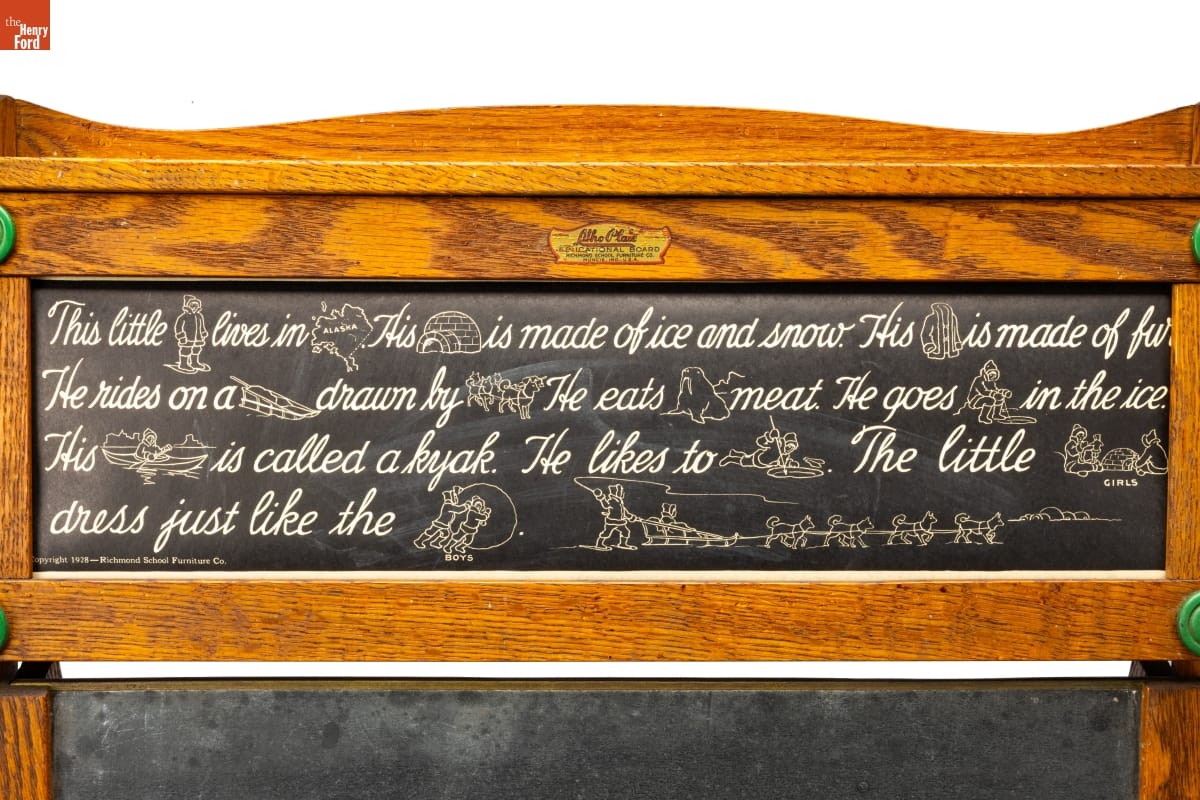 the
Henry
Ford
Litho Plate
EDUCATIONAL BOARD
RICHMOND SCHOOL FURNITURE CO.
MUNCIE, IND. U.S.A.
This little lives in ALASKA His is made of ice and snow. His is made of fur
He rides on a drawn by He eats meat. He goes in the ice.
His is called a kyak. He likes to . The little GIRLS
dress just like the BOYS .
Copyright 1928—Richmond School Furniture Co.